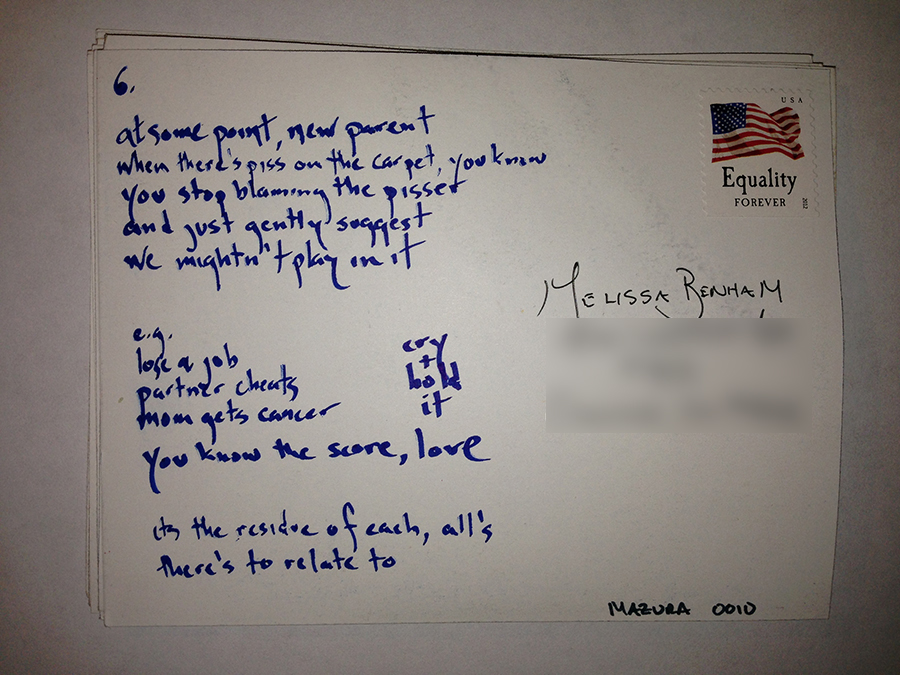 6.
at some point, new parent
when there's piss on the carpet, you know
you stop blaming the pisser
and just gently suggest
we mightn't play in it
e.g.
lose a job
partner cheats
mom gets cancer
you know the score, love
cry
+
hold
it
its the residue of each, all's
there's to relate to
USA
Equality
FOREVER
2012
MELISSA BENHAM
MAZURA 0010